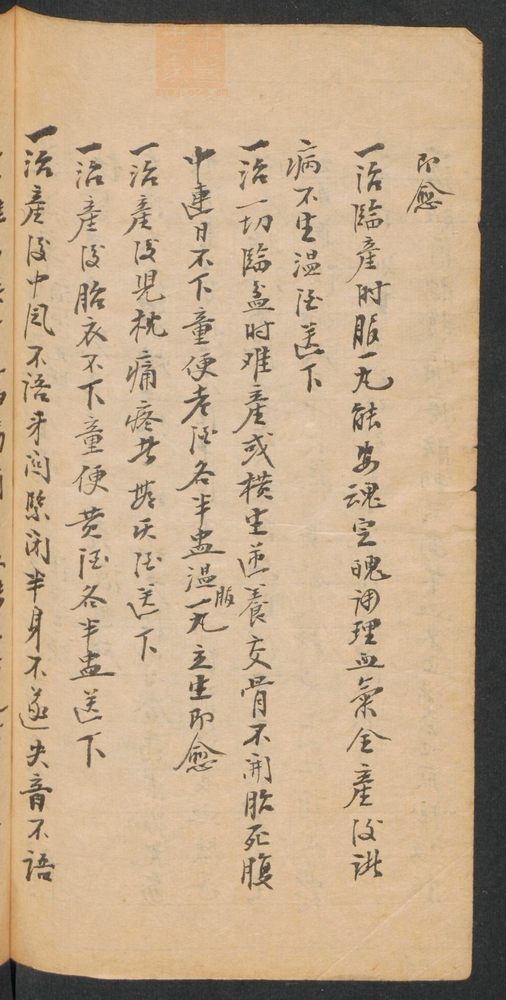 即愈
一治臨產时服一丸能安魂定魄调理血氣全產後諸
病不生温酒送下
一治一切臨盆时难產或横生逆養交骨不開胎死腹
中連日不下童便老酒各半盅温服一丸立生即愈
一治產後児枕痛疼 酒送下
一治產後胎衣不下童便黄酒各半盅送下
一治產後中风不語牙関緊闭半身不遂失音不語